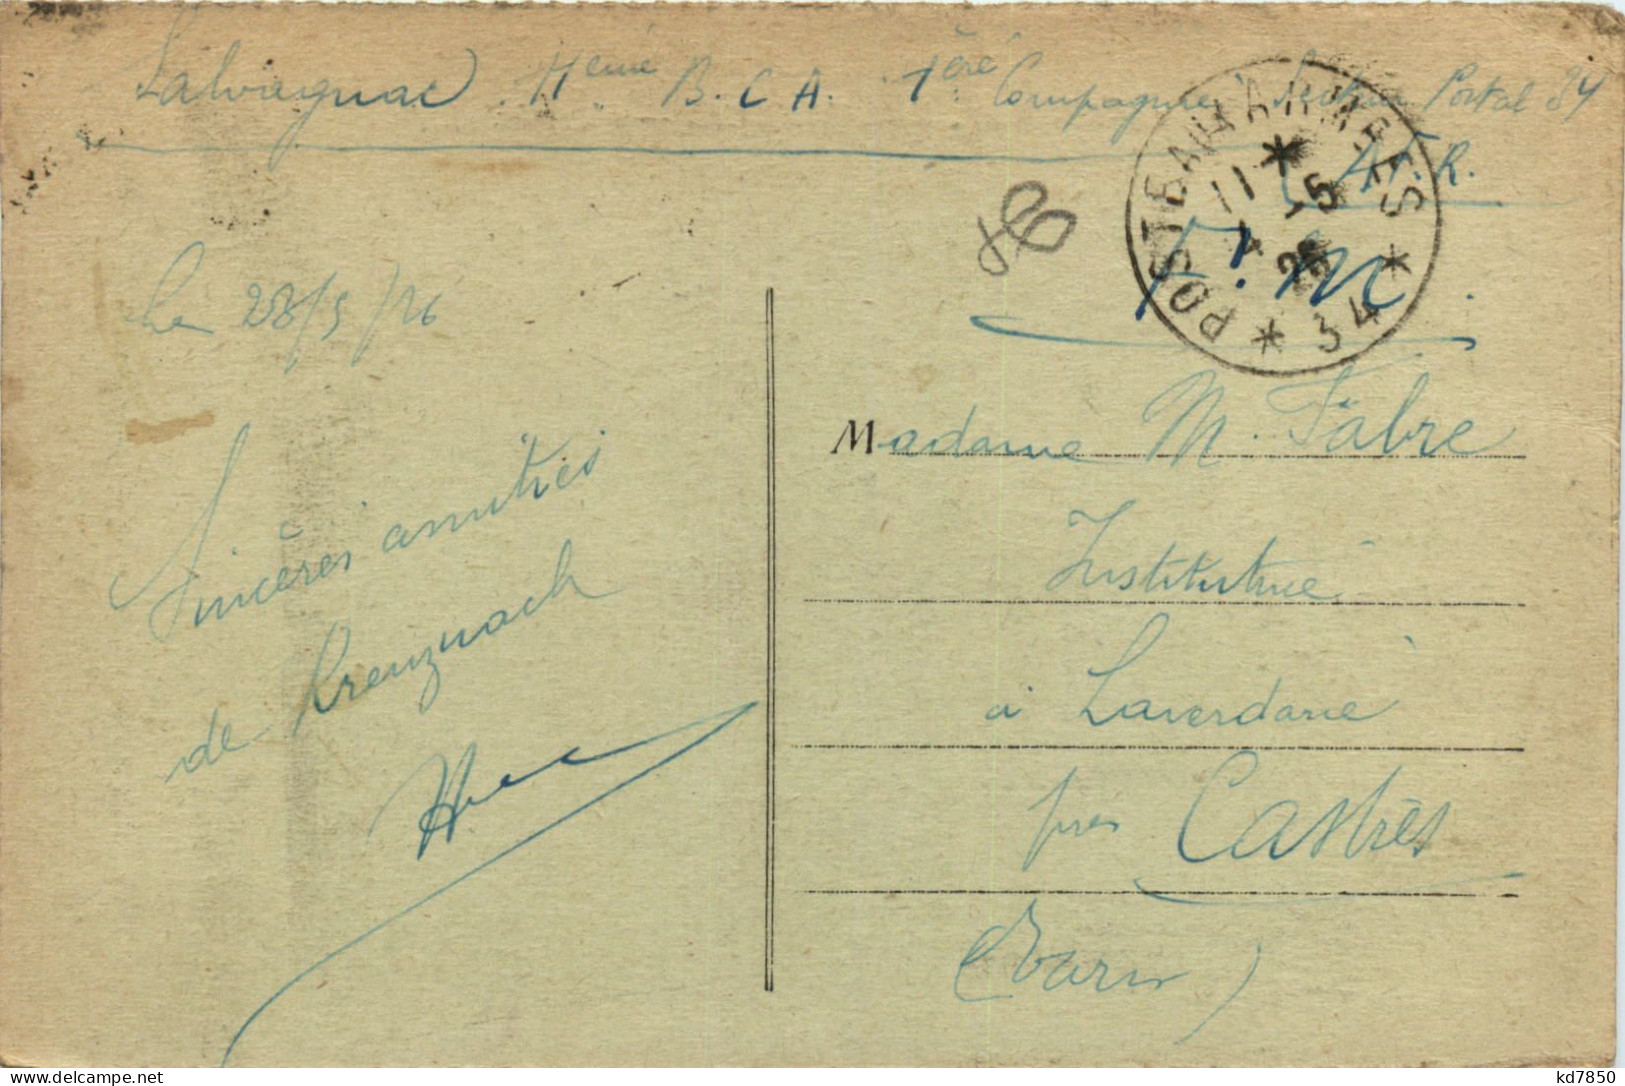 Salvagnac 11eme B.C.A. 1ère Compagnie Secteur Postal 84
A.F.R.
F.M.
POSTE AUX ARMEES
11
4 -5
26
* 34 *
Le 28/5/26
Sincères amitiés
de Kreuznach
Madame M. Fabre
Institutrice
à Laverdarié
près Castres
(Tarn)
kd7850